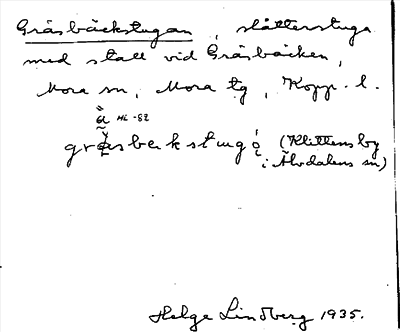 Gråsbäckstugan, slåtterstuga
med stall vid Gråsbäcken,
Mora sn, Mora tg, Kopp. l.
HL-82
(Klittens by
i Älvdalens sn)
Helge Lindberg 1935.